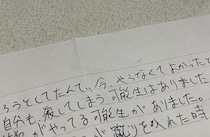 ろうとしてたんで、今、やらなくてよかったと
自分も、殺してしまう可能性はありました
がやってる可能性がありました。
が蹴りを入れた時